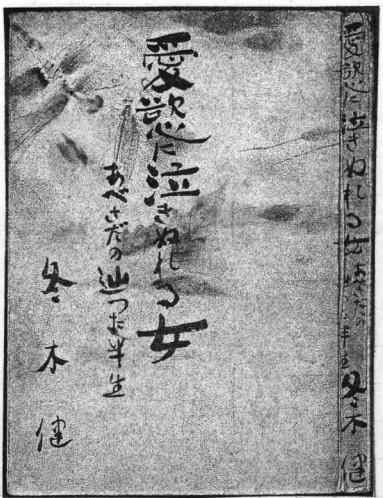 愛慾に泣きぬれる女 あべさだの 冬木健
愛慾に泣きぬれる女
あべさだの辿つた半生
冬木健